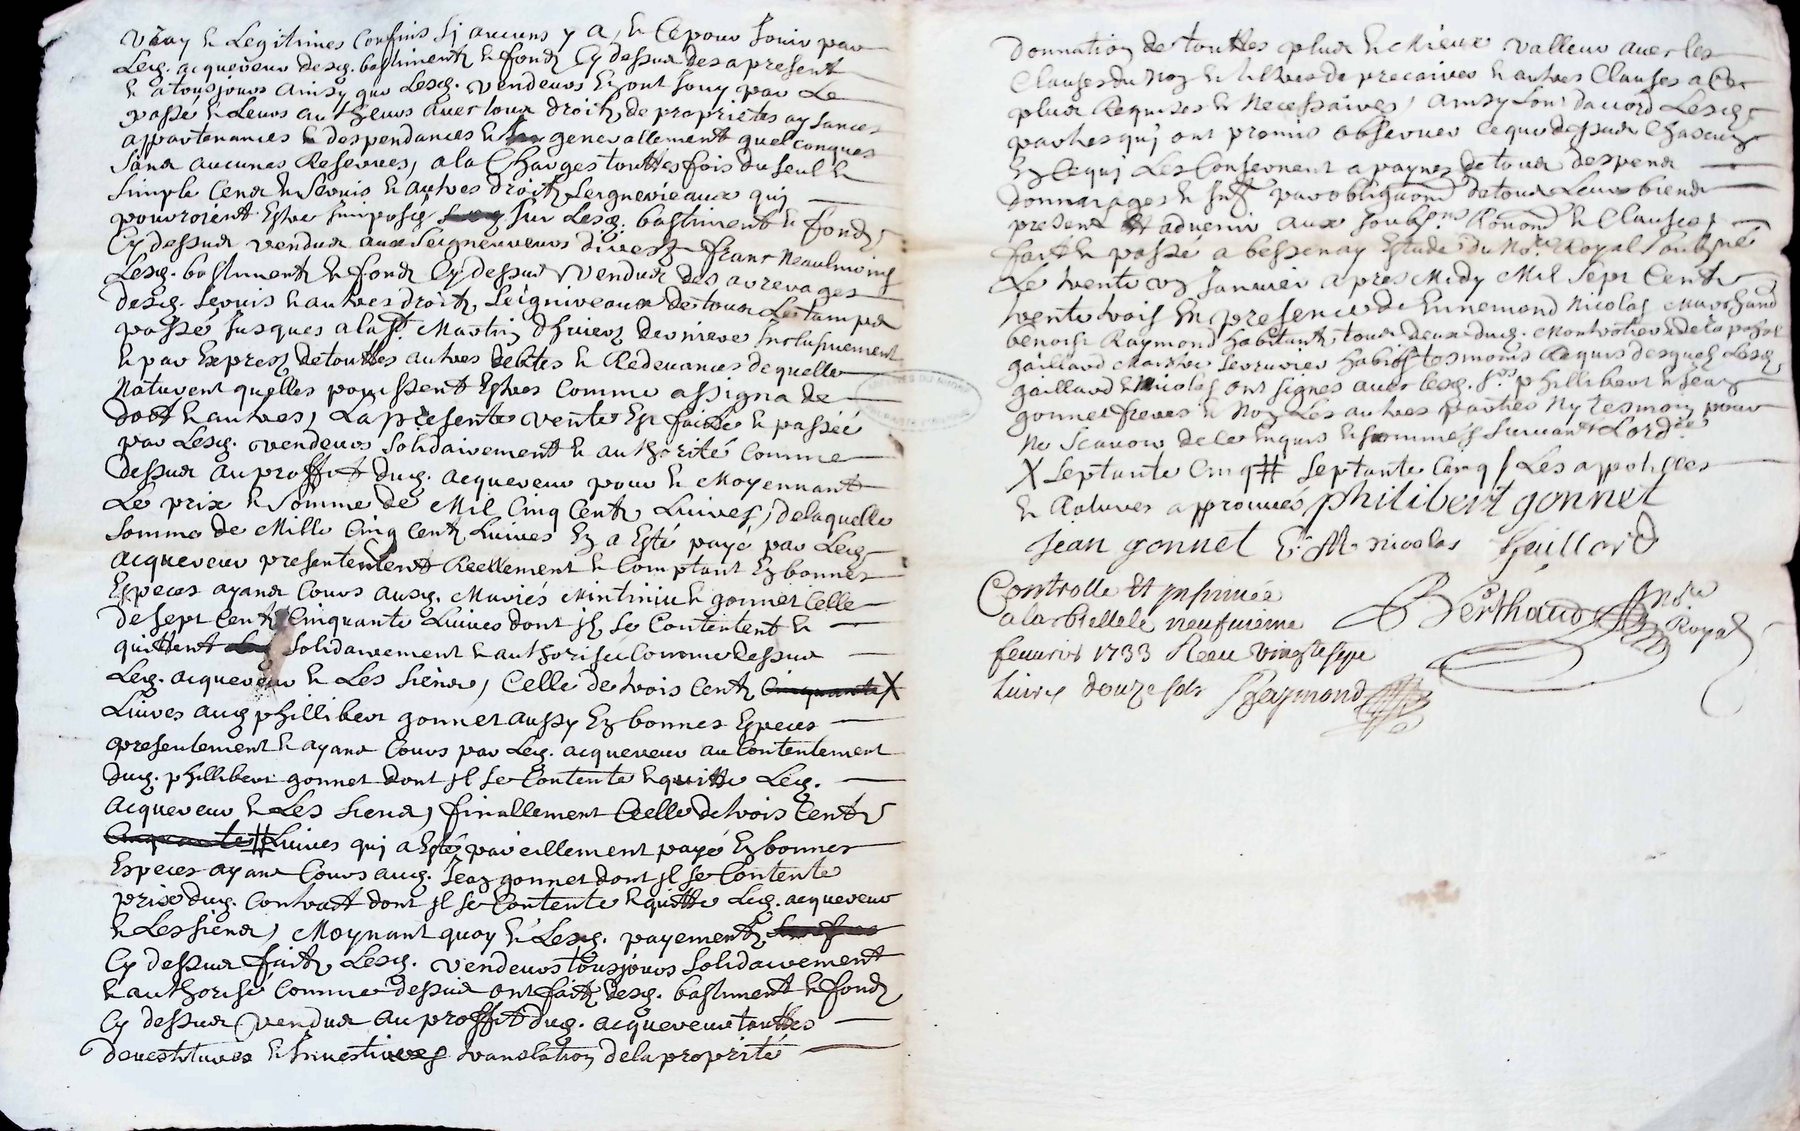 vray et legitimes confins sy aucuns y a, et ce pour jouir par
lesq. acquereur desq. bastiments et fonds cy dessus des a present
et a tousjours ainsy que lesq. vendeurs en ont jouy par le
passé et leurs autheurs avec tous droits de proprietes aysances
appartenances et despendances et generallement quelconques
sans aucunes reserves, a la charges touttes fois du seul et
simple cens et servis et autres droits seigneuriaux qui
pourroient estre imposés sur lesq. bastiment et fonds
cy dessus vendus aux seigneurs divers franc neaulmoins
lesq. bastiments et fonds cy dessus vendus des arrerages
desq. servis et autres droits seigniveaux de tous le tamps
passé jusques a la st. Martin d'hivers derniere inclusivement
et par expres de touttes autres debtes et redevances de quelle
nature et quelles puissent estres comme assigna de
dott et autres, la presente vente est faitte et passée
par lesq. vendeurs solidairement et authorité comme
dessus au proffit dud. acquereur pour et moyennant
le prix et somme de mil cinq cents livres, de laquelle
somme de mille cinq cents livres en a esté payé par led.
acquereur presentement reellement et comptant en bonnes
especes ayans cours ausd. mariés et gonnet celle
de sept cents cinquante livres dont ils se contentent et
quittent solidairement et authorisée comme dessus
led. acquereur et les siens, celle de trois cents cinquante X
livres aud. phillibert gonnet aussy en bonnes especes
presentement et ayans cours par led. acquereur au contentement
dud. phillibert gonnet dont il se contente et quitte led.
acquereur et les siens, finallement celle de trois cents
cinquante # livres qui a esté pareillement payé en bonnes
especes ayans cours aud. Jean gonnet dont il se contente
prix dud. contract dont il se contente et quitte led. acquereur
et les siens, moynant quoy et lesq. payements
cy dessus faits lesq. vendeurs tousjours solidairement
et authorisé comme dessus ont faits desq. bastiment et fonds
cy dessus vendus au proffit dud. acquereur touttes
devestitures et investitures translation de la proprieté
donnation de touttes plus et mieux valleur avec les
clauses du non et tiltres de precaires et autres clauses a ce
plus requises et necessaires, ainsy sont d'accord lesq.
parties qui ont promis observer ce que dessus chascun
en ce qui les consernent a paynes de tous despens
dommages et int. par obligation de tous leurs biens
present et advenir aux soubs.ons renon.ons et clauses,
fait et passé a bessenay estude du no.re royal soubsigné
le trente un janvier apres midy mil sept cents
trente trois en presence de Ennemond Nicolas marchand
benoist Raymond habitants tous deux dud. et de
gaillard maistre serrurier habit. tesmoins requis desquels lesq.
gaillard et nicolas ont signés avec lesq. s.rs phillibert et jean
gonnet freres et non les autres parties ny tesmoin pour
ne scavoir de ce enquis et sommés suivant l'ord.ce
X septante cinq # septante cinq / les appostilles
et ratures approuvés philibert gonnet
jean gonnet E. M. nicolas Gaillard
Controlle et insinué
a larbrelle le neufvieme
fevrier 1733 Receu vingt sept
livres douze sols Reymond
Berthaud no.re Royal